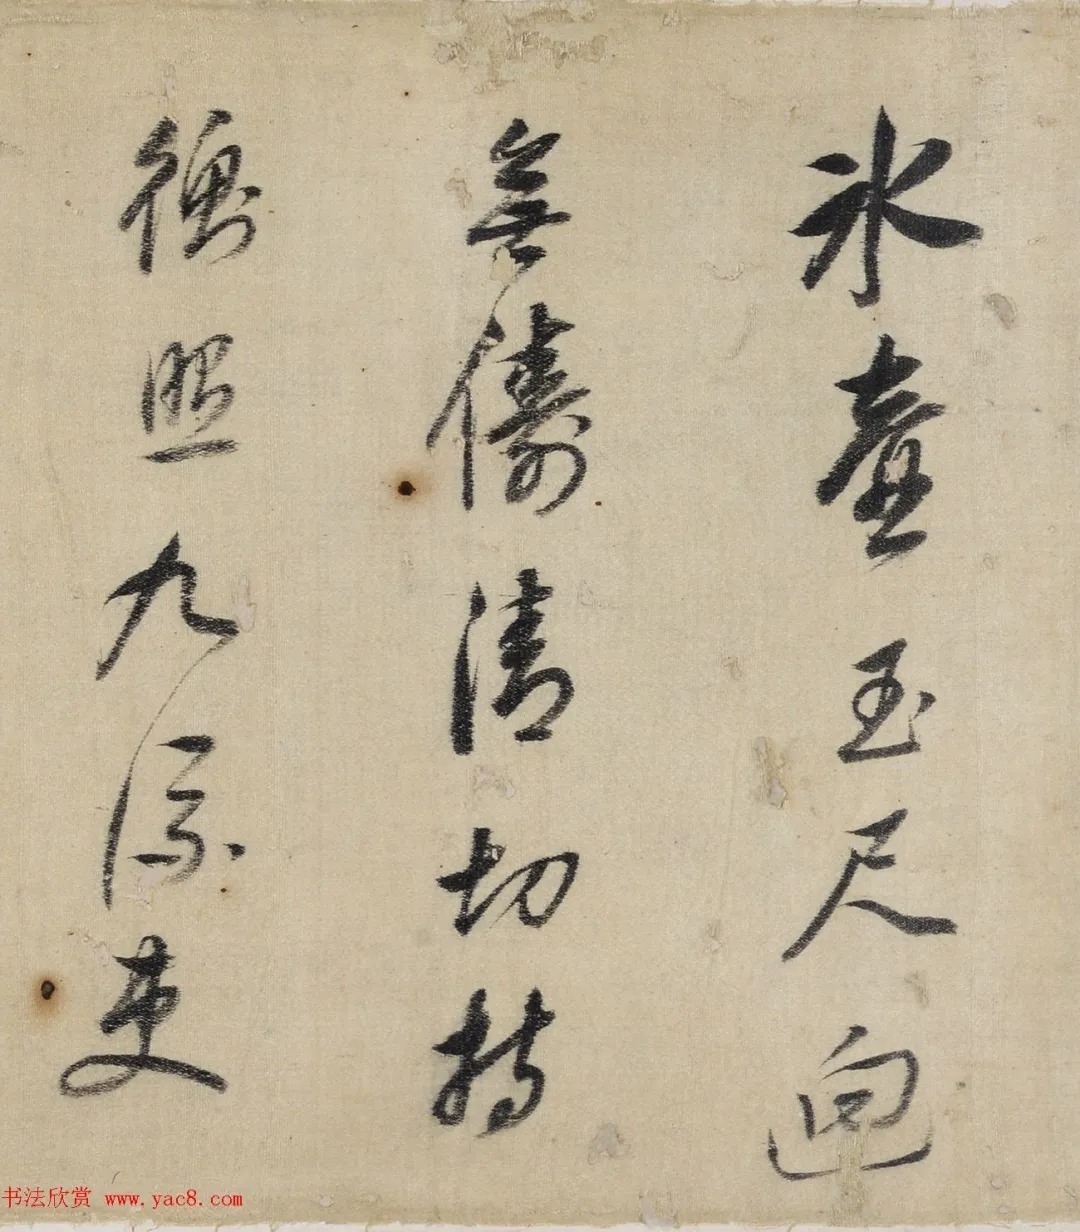 冰壺玉尺迥
無儔清切持
衡照九流吏
书法欣赏 www.yac8.com